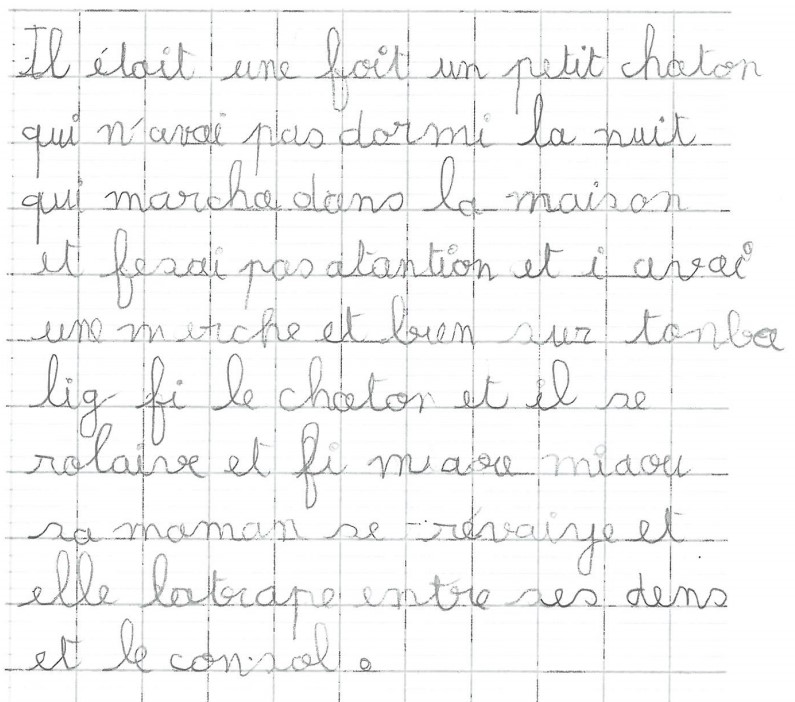 Il était une foit un petit chaton
qui n'avai pas dormi la nuit
qui marcha dans la maison
et fesai pas atantion et i avai
une merche et bien sur tonba
lig fi le chaton et il se
rolaive et fi miaou miaou
sa maman se révaiye et
elle latrape entre ses dens
et le consol.